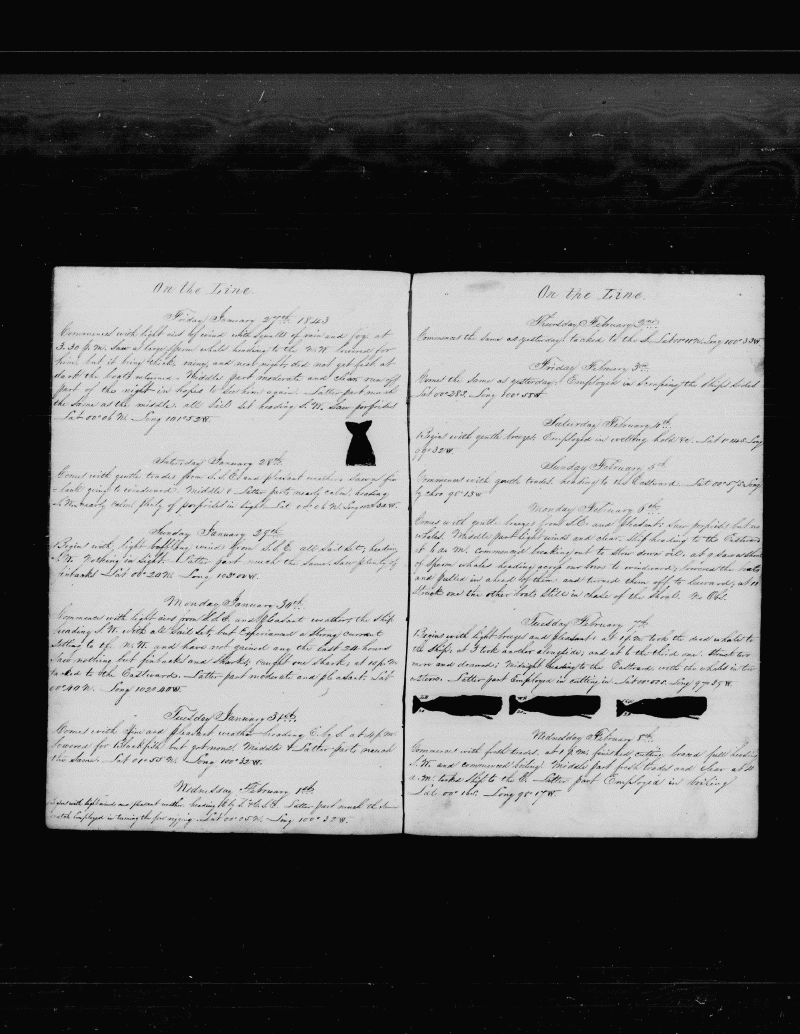 On the Line.
Friday January 27th 1843
Commences with light airs of wind with squalls of rain and fog at
3.30 P.M. Saw a large sperm whale heading to the N.W. lowered for
him, but it being thick, rainy, and near night, did not get fast at
dark the boats returned. Middle part moderate and clear run off
part of the night in hopes to See him again. Latter part much
the same as the middle. all Sail Set heading S.W. Saw porpoises
Lat 00°06 N. Long 101°52W.
Saturday January 28th
Comes with gentle trades from S.S.E. and pleasant weather Saw a fin
back going to windward. Middle & Latter parts nearly calm, heading
S.W. nearly calm plenty of porpoises in Sight. Lat
Sunday January 29th
Begins with light baffling winds from S.S.E. all Sail Set, heading
S.W. Nothing in Sight. Latter part much the Same. Saw plenty of
finbacks Lat 00°20 N. Long 103°00W.
Monday January 30th
Commences with light airs from S.S.E. and pleasant weather, the Ship
heading S.W. with all Sail Set, but Experienced a Strong current
Setting to ye N.W. and have not gained any the last 24 hours
Saw nothing but finbacks and Sharks, caught one Shark, at 10 P.M.
tacked to the Eastward. Latter part moderate and pleasant. Lat
00°49 N. Long 102°40W.
Tuesday January 31st
Comes with fine and pleasant weather heading E. by S. at 4 P.M.
lowered for blackfish but got none. Middle & Latter parts much
the Same. Lat 00°55 N. Long 100°32W.
Wednesday February 1st
Begins with light winds and pleasant weather. heading Latter part much the Same
Employed in turning the fore rigging. Lat 00°05 N. Long 100°32W.
On the Line.
Thursday February 2nd
Commences the same as yesterday tacked to the S. Lat 00°10 N. Long 100°33W
Friday February 3rd
Comes the Same as yesterday. Employed in Scraping the Ships Sides
Lat 00°28S. Long 100°55W
Saturday February 4th
Begins with gentle breezes Employed in wetting hold &c. Lat 1°14S. Long
99°32W.
Sunday February 5th
Commences with gentle trades. heading to the Eastward. Lat 00°57S Long
by chro 98°13W
Monday February 6th
Comes with gentle breezes from S.E. and pleasant. Saw porpoises but no
whales. Middle part light winds and clear. Ship heading to the Eastward
at 6 A.M. commenced breaking out to Stow down oil. at 9 Saw a Shoal
of Sperm whales heading across our bows to windward; lowered the boats
and pulled in ahead of them and turned them off to leeward, at 11
Struck one the other boats Still in chase of the Shoal. No Obs.
Tuesday February 7th
Begins with light breezes and pleasant: at 1 P.M. took the dead whales to
the Ship, at 3 took another alongside; and at 6 the third one. Struck two
more and drawed; Midnight heading to the Eastward with the whales in
Latter part Employed in cutting in Lat 00°00S. Long 97°35W.
Wednesday February 8th
Commences with fresh trades, at 1 P.M. finished cutting braced full heading
S.W. and commenced boiling. Middle part fresh trades and clear at 11
A.M. tacks Ship to the Latter part Employed in boiling
Lat 00°16S. Long 98°17W.